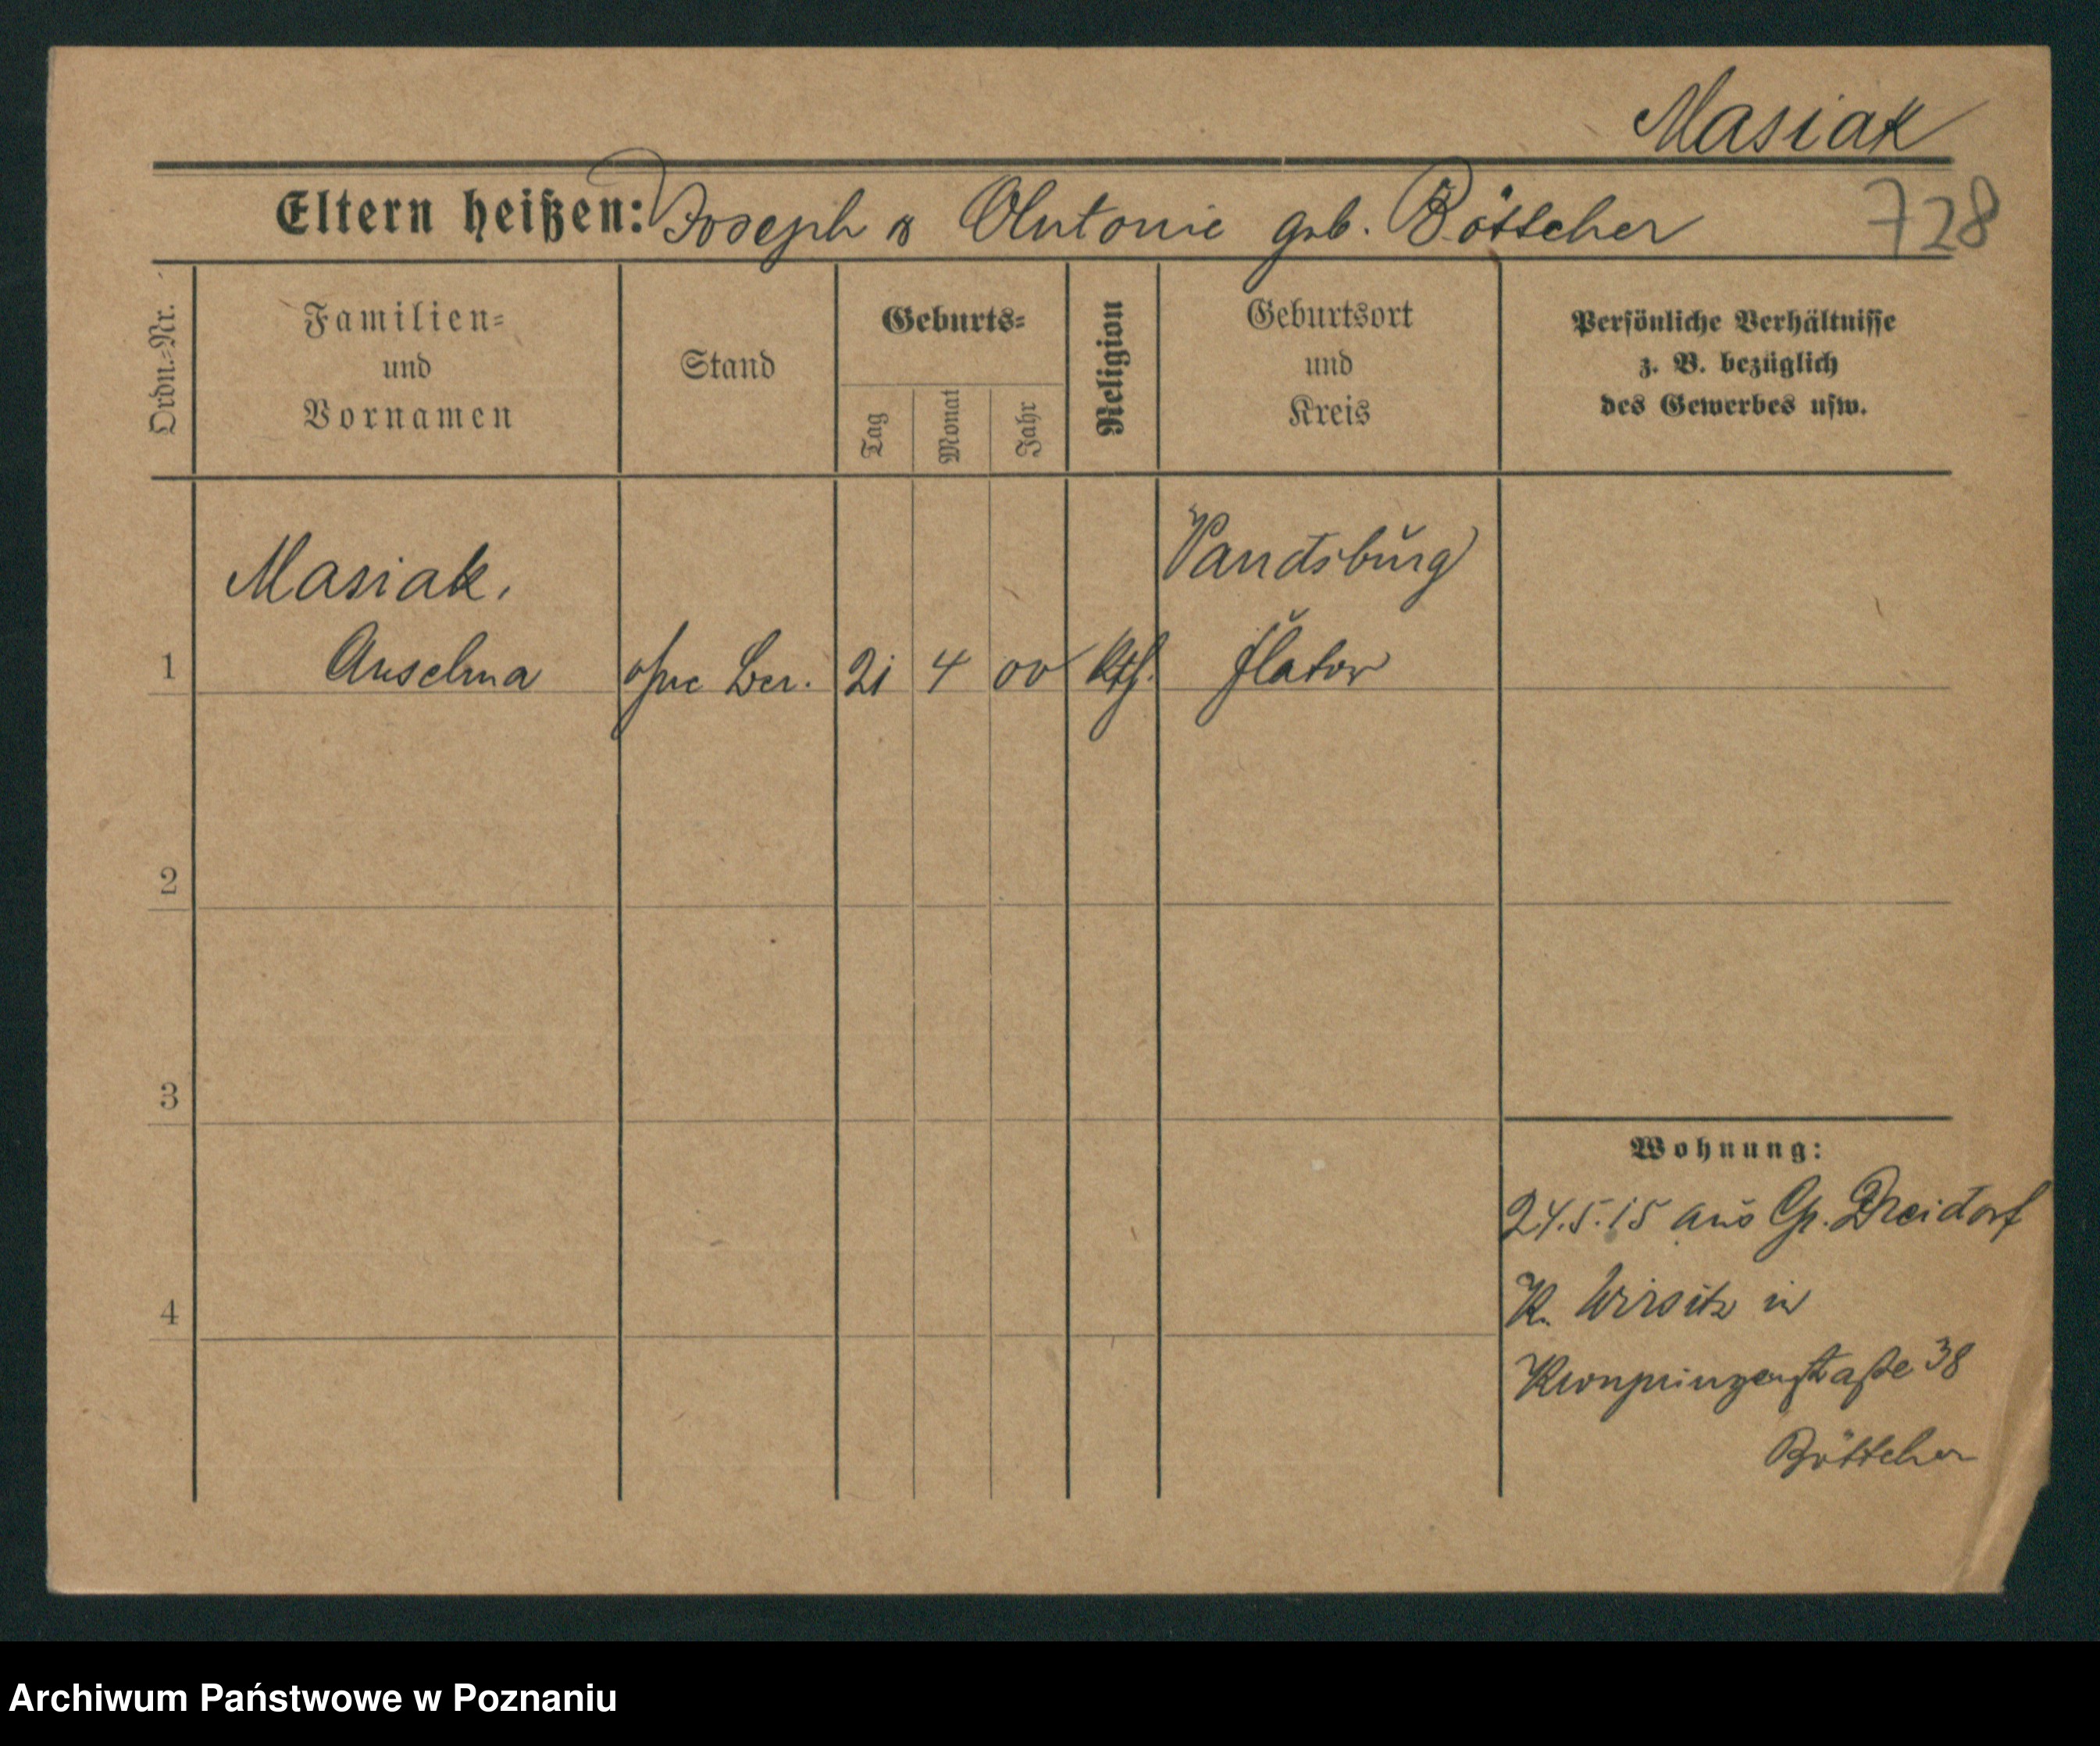 Masiak
Eltern heißen: Joseph & Antonie geb. Böttcher
728
Ordn.-Nr.
Familien-
und
Vornamen
Stand
Geburts-
Tag
Monat
Jahr
Religion
Geburtsort
und
Kreis
Persönliche Verhältnisse
z. B. bezüglich
des Gewerbes usw.
Masiak,
Vandsburg
1 Anselma ohne Ber. 21 4 00 kth. Flatow
2
3
4
Wohnung:
24.5.15 aus Gr. Dreidorf
K. Wirsitz in
Kronprinzenstraße 38
Böttcher
Archiwum Państwowe w Poznaniu